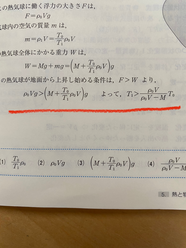 の熱気球に働く浮力の大きさは,
F=ρ₀Vg
球内の空気の質量 m は,
m=ρ₁V=T₀/T₁ρ₀V
熱気球全体にかかる重力 W は,
W=Mg+mg=(M+T₀/T₁ρ₀V)g
の熱気球が地面から上昇し始める条件は, F>W より,
ρ₀Vg>(M+T₀/T₁ρ₀V)g よって, T₁>ρ₀V/ρ₀V−M T₀
(1) T₀/T₁ρ₀ (2) ρ₀Vg (3) (M+T₀/T₁ρ₀V)g (4) ρ₀V/ρ₀V−M